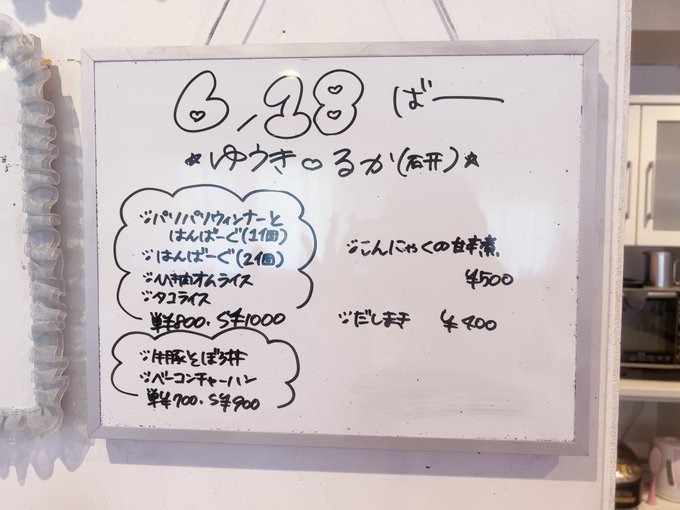 6/18 ばー
★ゆうき♡るか(石井)★
パリパリウィンナーと
はんばーぐ(1個)
はんばーぐ(2個)
ひき肉オムライス
タコライス
単¥800. S¥1000
牛豚そぼろ丼
ベーコンチャーハン
単¥700. S¥900
こんにゃくの甘辛煮
¥500
だしまき ¥400